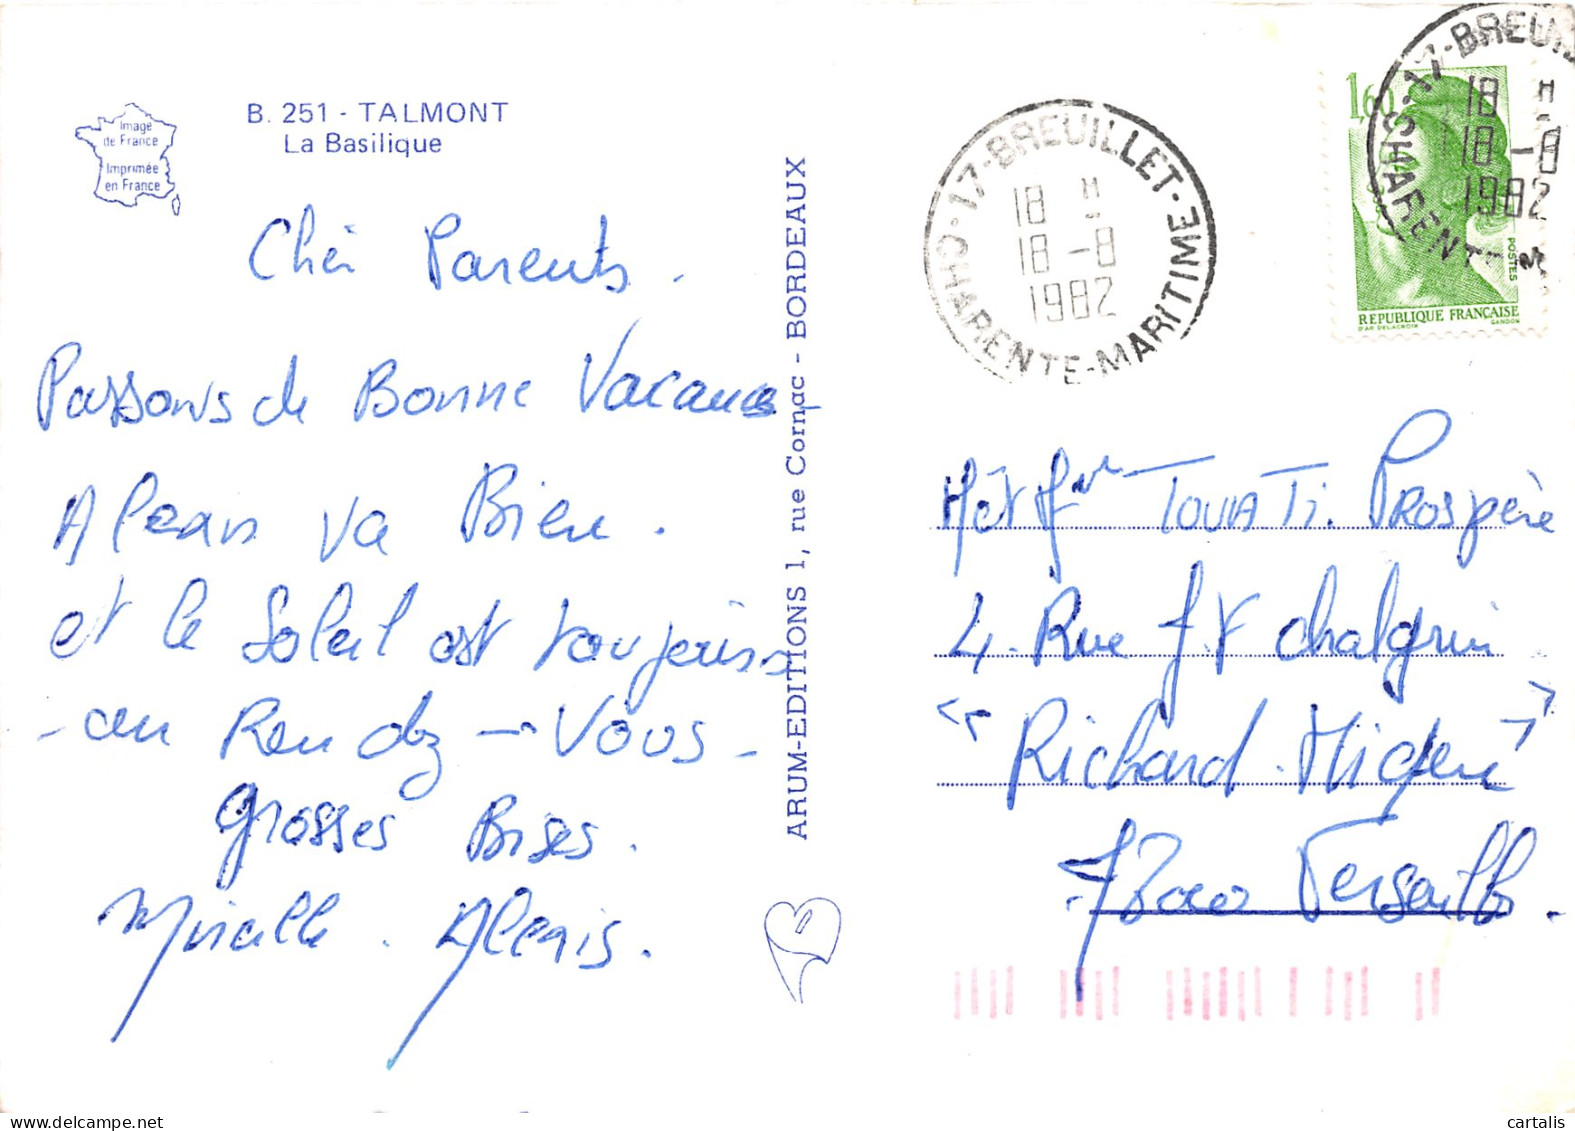 Image
de France
Imprimée
en France
B. 251 - TALMONT
La Basilique
Chéi Parents.
Passons de Bonne Vacances
Alexan va Bien.
et le Soleil est toujours
- au Rendez - Vous -
grosses Bises.
Mireille. Alexis.
ARUM-EDITIONS 1, rue Cornac - BORDEAUX
17-BREUILLET-
18 H
18 -8
1982
CHARENTE-MARITIME
17-BREUIL
18 H
18 -8
1982
CHARENTE-M
1,60
POSTES
REPUBLIQUE FRANÇAISE
D'AP. DELACROIX GANDON
Mr et Mme TOUATI. PROSpère
4. Rue J F Chalgrin
"Richard Mique"
78000 Versailles.
cartalis